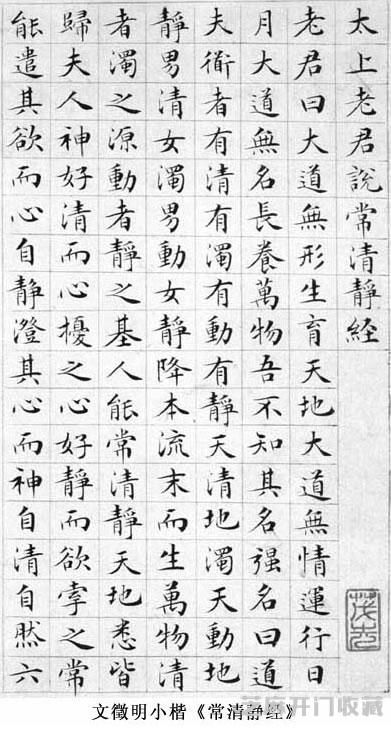 太上老君說常清靜經
老君曰大道無形生育天地大道無情運行日
月大道無名長養萬物吾不知其名强名曰道
夫衜者有清有濁有動有靜天清地濁天動地
靜男清女濁男動女靜降本流末而生萬物清
者濁之源動者靜之基人能常清靜天地悉皆
歸夫人神好清而心擾之心好靜而欲牽之常
能遣其欲而心自靜澄其心而神自清自然六
文徵明小楷《常清静经》
开门收藏